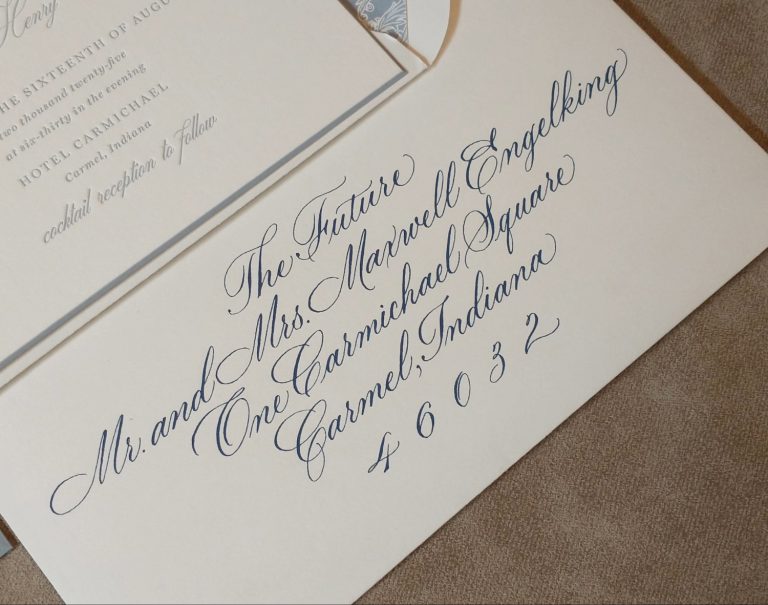 Henry
THE SIXTEENTH OF AUGUS
two thousand twenty-five
at six-thirty in the evening
HOTEL CARMICHAEL
Carmel, Indiana
cocktail reception to follow
The Future
Mr. and Mrs. Maxwell Engelking
One Carmichael Square
Carmel, Indiana
46032